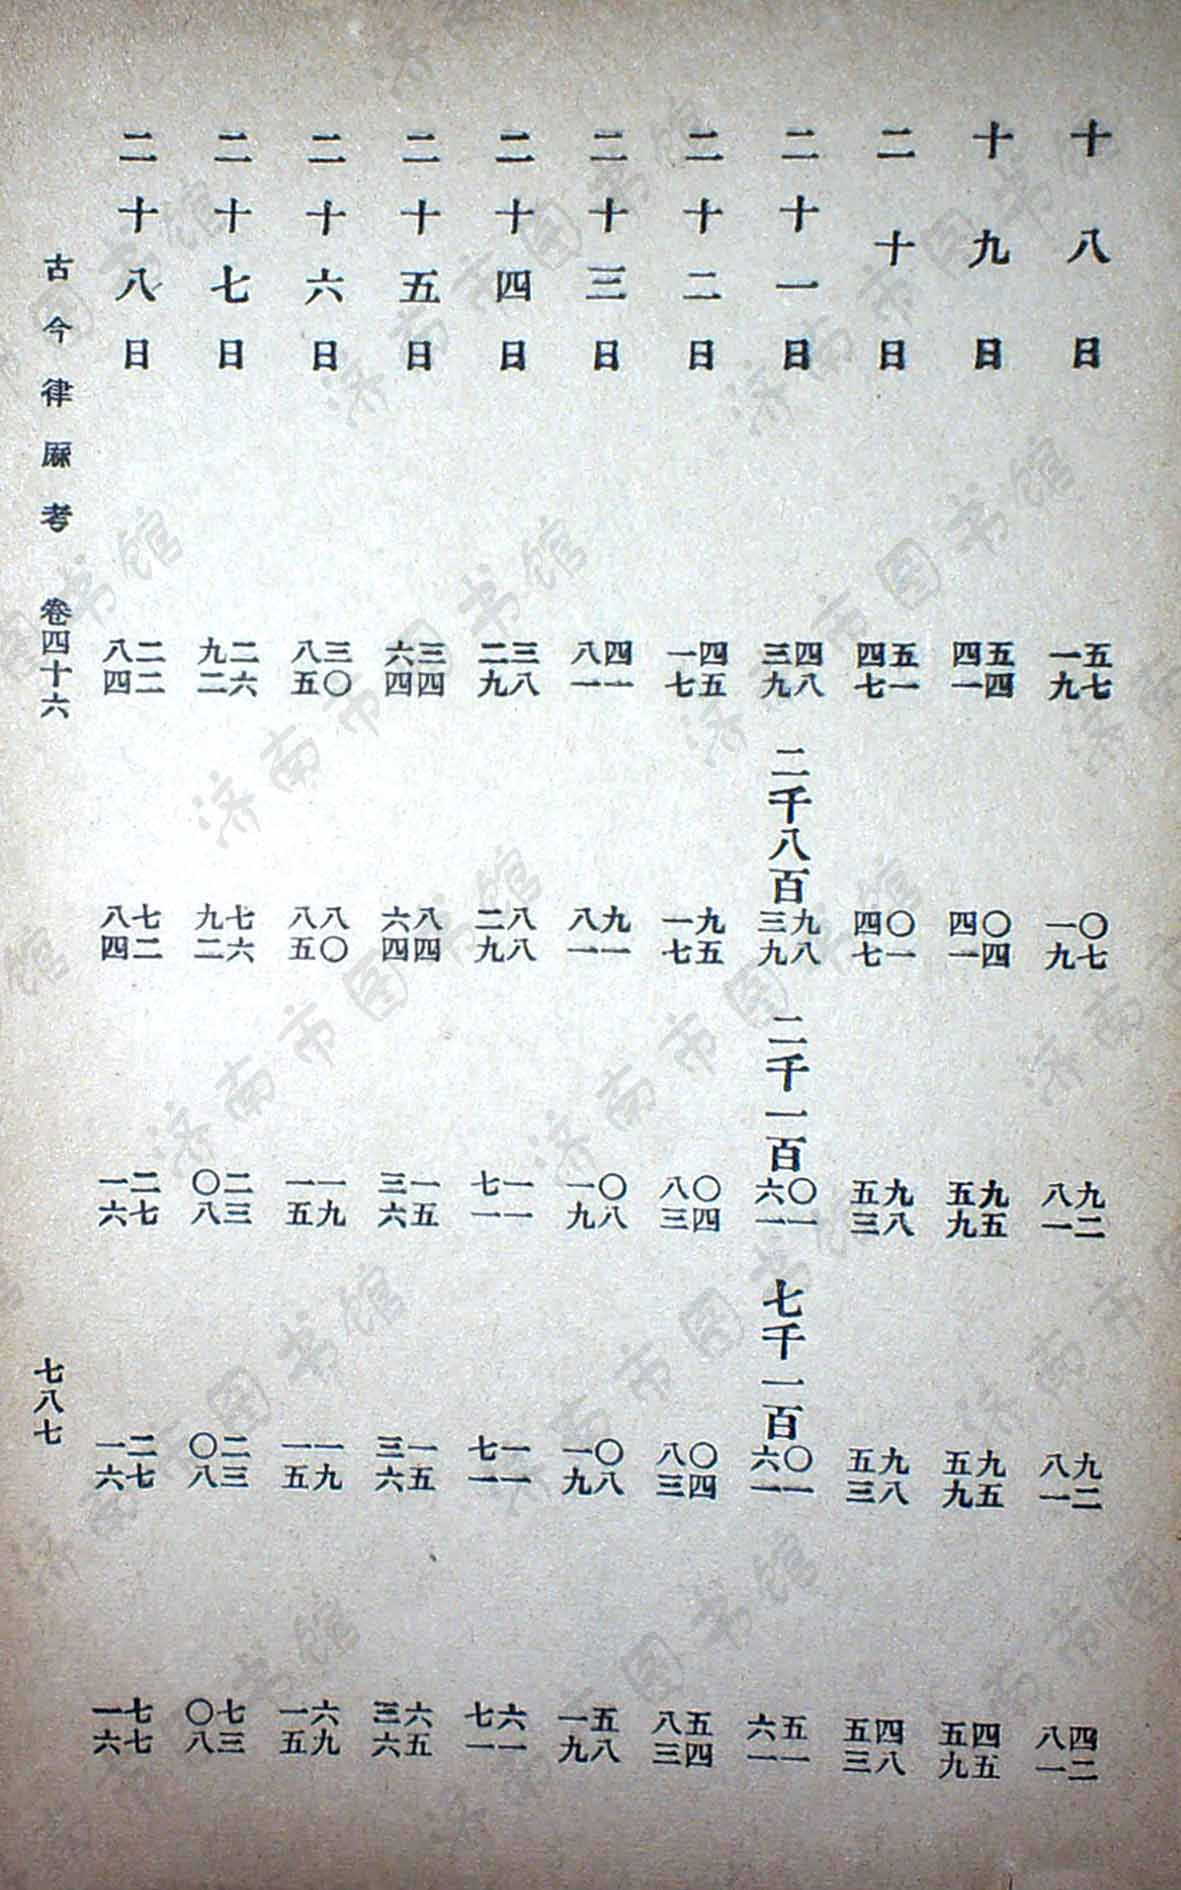 十八日 五七一九 〇七一九 九二八一 九二八一 四二八一
十九日 五四四一 〇四四一 九五五九 九五五九 四五五九
二十日 五一四七 〇一四七 九八五三 九八五三 四八五三
二十一日 四八三九 二千八百 九八三九 二千一百 〇一六一 七千一百 〇一六一 五一六一
二十二日 四五一七 九五一七 〇四八三 〇四八三 五四八三
二十三日 四一八一 九一八一 〇八一九 〇八一九 五八一九
二十四日 三八二九 八八二九 一一七一 一一七一 六一七一
二十五日 三四六四 八四六四 一五三六 一五三六 六五三六
二十六日 三〇八五 八〇八五 一九一五 一九一五 六九一五
二十七日 二六九二 七六九二 二三〇八 二三〇八 七三〇八
二十八日 二二八四 七二八四 二七一六 二七一六 七七一六
古今律厤考 卷四十六 七八七
济南市图书馆